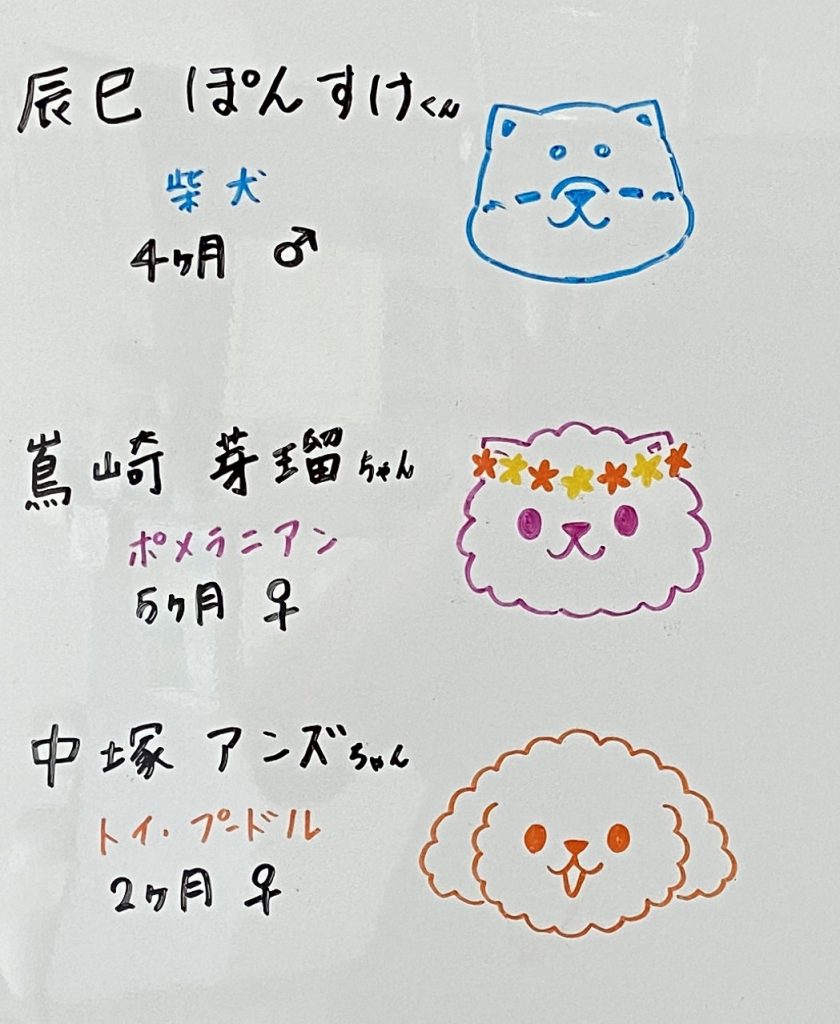 辰巳 ぽんすけくん
柴犬
4ヶ月 ♂
嶌崎 芽瑠ちゃん
ポメラニアン
5ヶ月 ♀
中塚 アンズちゃん
トイ・プードル
2ヶ月 ♀